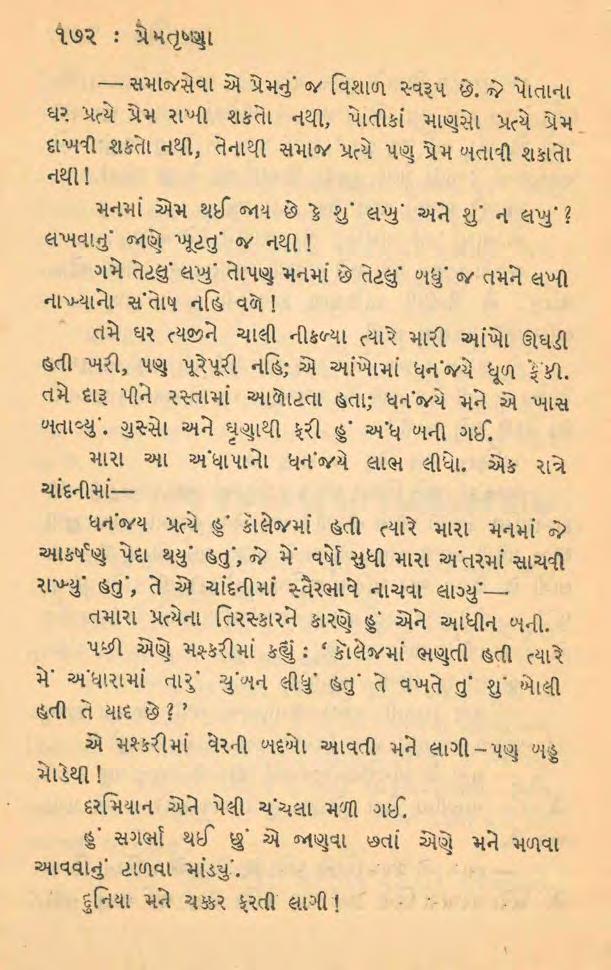 ૧૭૨ : પ્રેમતૃષ્ણા
— સમાજસેવા એ પ્રેમનું જ વિશાળ સ્વરૂપ છે. જે પોતાના
ઘર પ્રત્યે પ્રેમ રાખી શકતો નથી, પોતીકાં માણસો પ્રત્યે પ્રેમ
દાખવી શકતો નથી, તેનાથી સમાજ પ્રત્યે પણ પ્રેમ બતાવી શકાતો
નથી!
મનમાં એમ થઈ જાય છે કે શું લખું અને શું ન લખું?
લખવાનું જાણે ખૂટતું જ નથી!
ગમે તેટલું લખું તોપણ મનમાં છે તેટલું બધું જ તમને લખી
નાખ્યાનો સંતોષ નહિ વળે!
તમે ઘર ત્યજીને ચાલી નીકળ્યા ત્યારે મારી આંખો ઊઘડી
હતી ખરી, પણ પૂરેપૂરી નહિ; એ આંખોમાં ધનંજયે ધૂળ ફેંકી.
તમે દારૂ પીને રસ્તામાં આળોટતા હતા; ધનંજયે મને એ ખાસ
બતાવ્યું. ગુસ્સો અને ઘૃણાથી ફરી હું અંધ બની ગઈ.
મારા આ અંધાપાનો ધનંજયે લાભ લીધો. એક રાત્રે
ચાંદનીમાં—
ધનંજય પ્રત્યે હું કૉલેજમાં હતી ત્યારે મારા મનમાં જે
આકર્ષણ પેદા થયું હતું, જે મેં વર્ષો સુધી મારા અંતરમાં સાચવી
રાખ્યું હતું, તે એ ચાંદનીમાં સ્વૈરભાવે નાચવા લાગ્યું—
તમારા પ્રત્યેના તિરસ્કારને કારણે હું એને આધીન બની.
પછી એણે મશ્કરીમાં કહ્યું : ‘કૉલેજમાં ભણતી હતી ત્યારે
મેં અંધારામાં તારું ચુંબન લીધું હતું તે વખતે તું શું બોલી
હતી તે યાદ છે?’
એ મશ્કરીમાં વેરની બદબો આવતી મને લાગી – પણ બહુ
મોડેથી!
દરમિયાન એને પેલી ચંચલા મળી ગઈ.
હું સગર્ભા થઈ છું એ જાણવા છતાં એણે મને મળવા
આવવાનું ટાળવા માંડયું.
દુનિયા મને ચક્કર ફરતી લાગી!